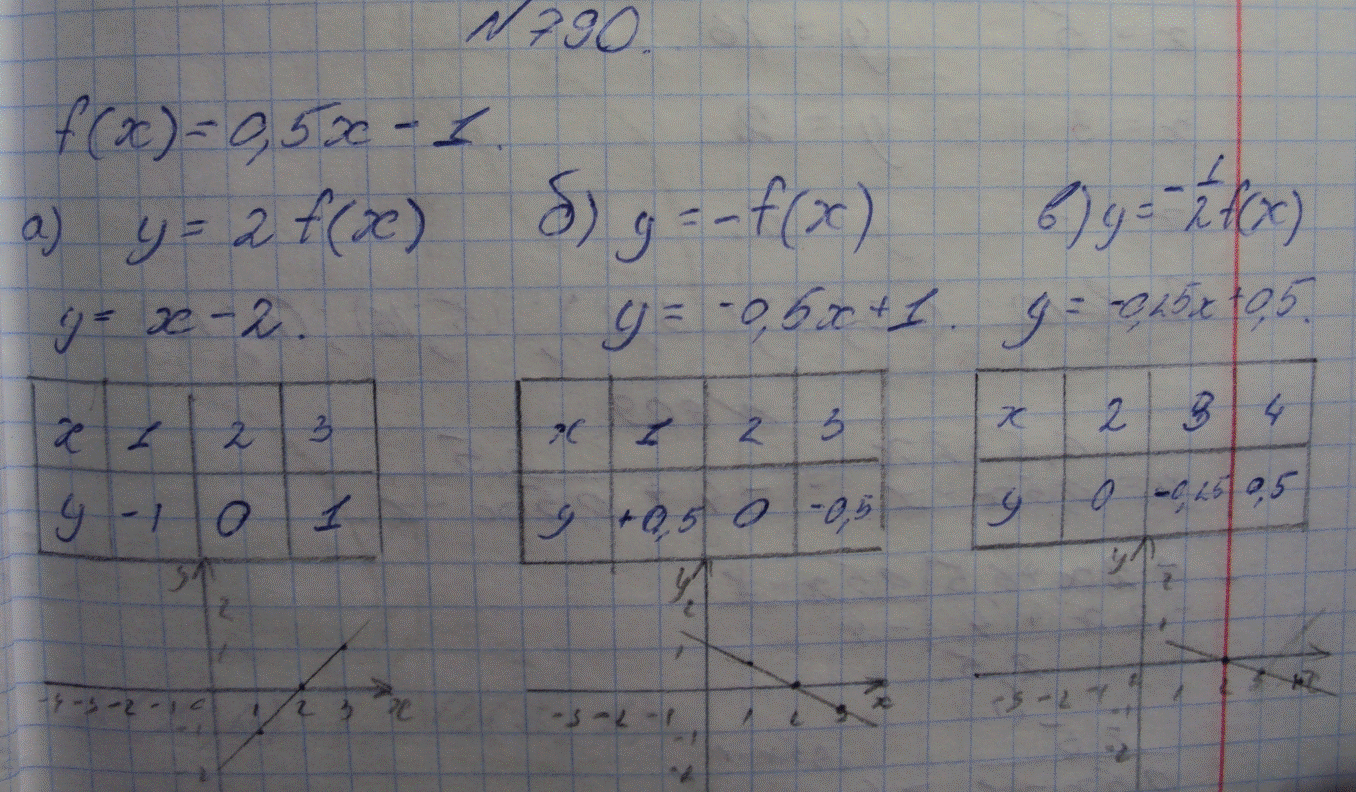 №790.
f(x)=0,5x-1.
а) y=2f(x) б) y=-f(x) в) y=-1/2f(x)
y=x-2. y=-0,5x+1. y=-0,25x+0,5.
x 1 2 3 x 1 2 3 x 2 3 4
y -1 0 1 y +0,5 0 -0,5 y 0 -0,25 0,5
y y y
2 2 2
1 1 1
-4 -3 -2 -1 0 1 2 3 x -3 -2 -1 1 2 3 x -3 -2 -1 0 1 2 3 x
-1 -1 -1
-2 -2 -2